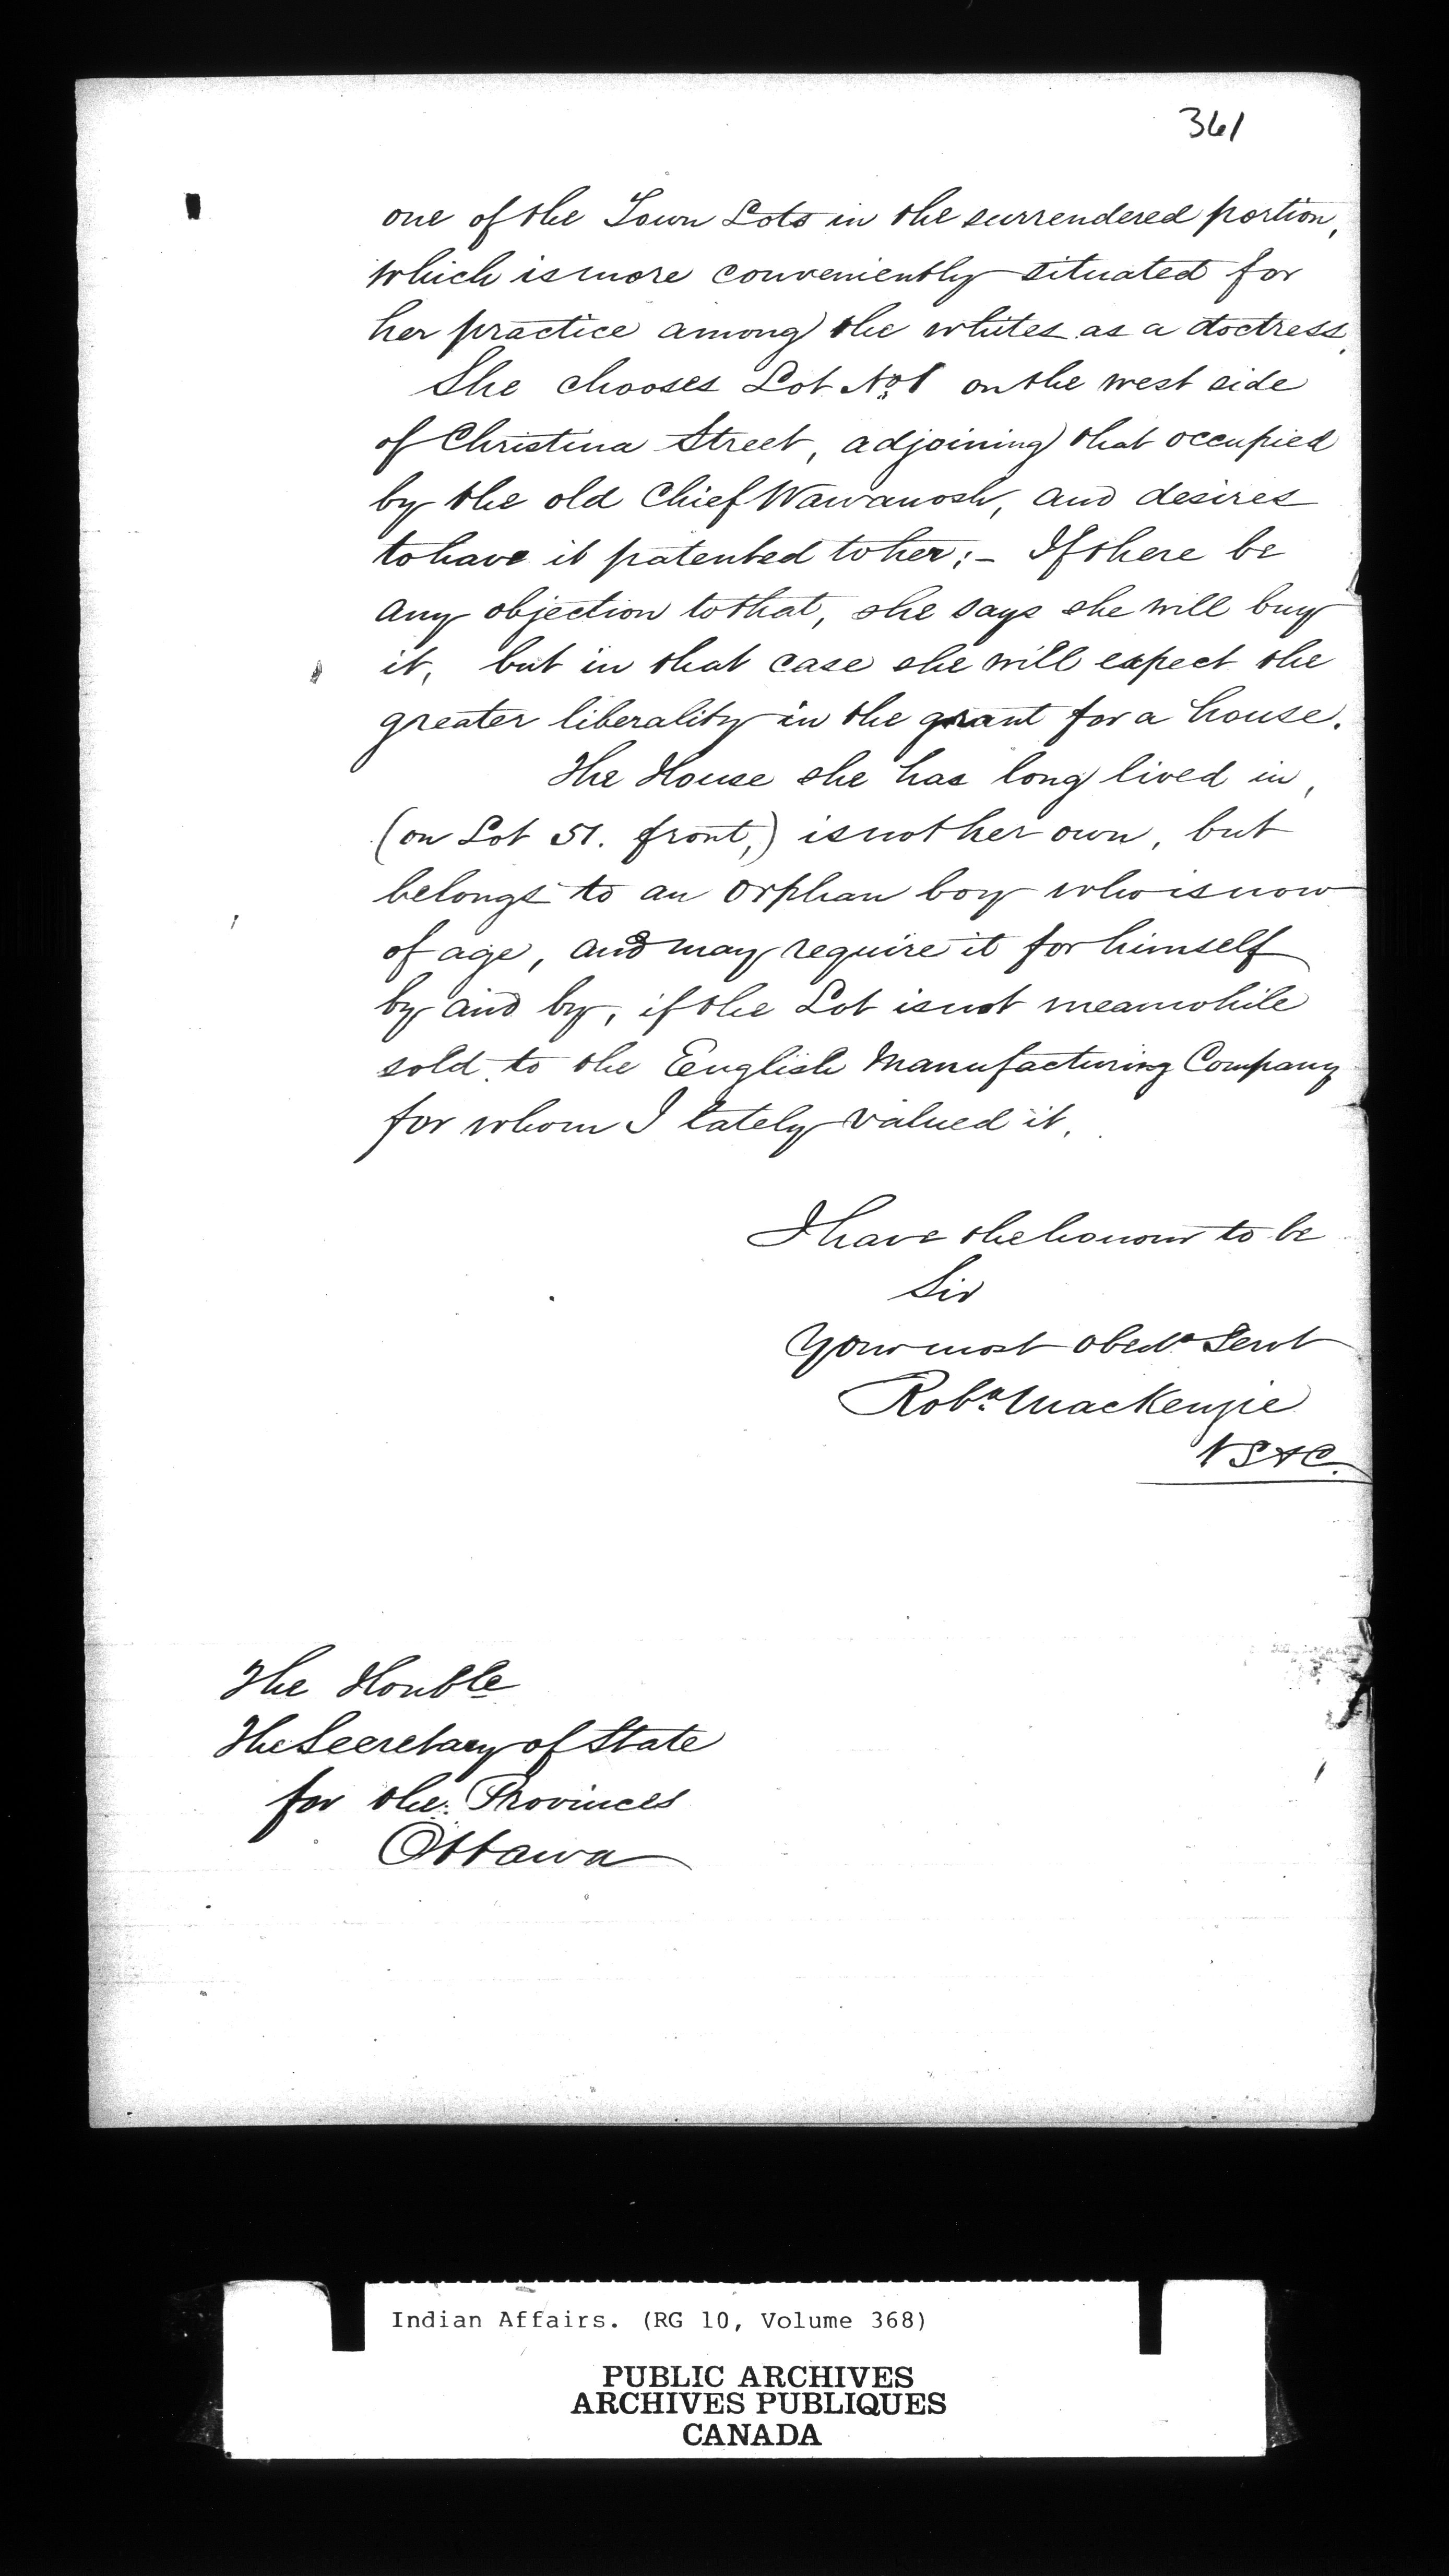 361
one of the Town Lots in the surrendered portion,
which is more conveniently situated for
her practice among the whites as a doctress.
She chooses Lot No. 1 on the west side
of Christina Street, adjoining that occupied
by the old Chief Wawanosh, and desires
to have it patented to her; – If there be
any objection to that, she says she will buy
it, but in that case she will expect the
greater liberality in the grant for a house.
The House she has long lived in,
(on Lot 51. front,) is not her own, but
belongs to an orphan boy who is now
of age, and may require it for himself
by and by, if the Lot is not meanwhile
sold to the English Manufacturing Company
for whom I lately valued it.
I have the honour to be
Sir
Your most obedt Servt
Robt. Mackenzie
The Honble
The Secretary of State
for the Provinces
Ottawa
Indian Affairs. (RG 10, Volume 368)
PUBLIC ARCHIVES
ARCHIVES PUBLIQUES
CANADA